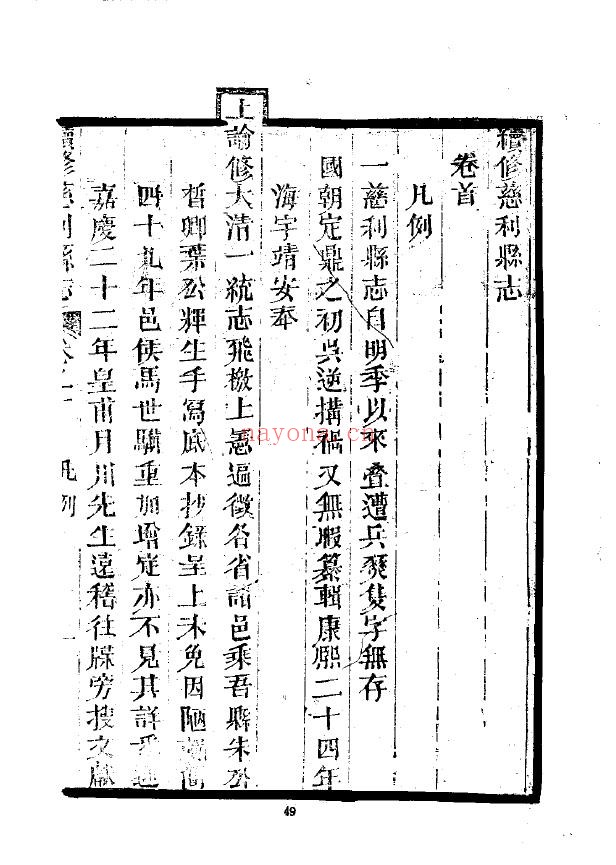 續修慈利縣志
卷首
凡例
一慈利縣志自明季以來疊遭兵燹隻字無存
國朝定鼎之初吳逆搆禍又無暇纂輯康熙二十四年
海宇靖安奉
上諭修大清一統志飛檄上憲遍徵各省誌邑乘吾縣朱公
哲卿葉公輝生手寫底本抄錄呈上未免因陋
四十九年邑侯馬世驥重加增定亦不見其詳
嘉慶二十二年皇甫月川先生遠稽往牒旁搜文獻
續修慈利縣志
凡例
一
nayona.cn
49